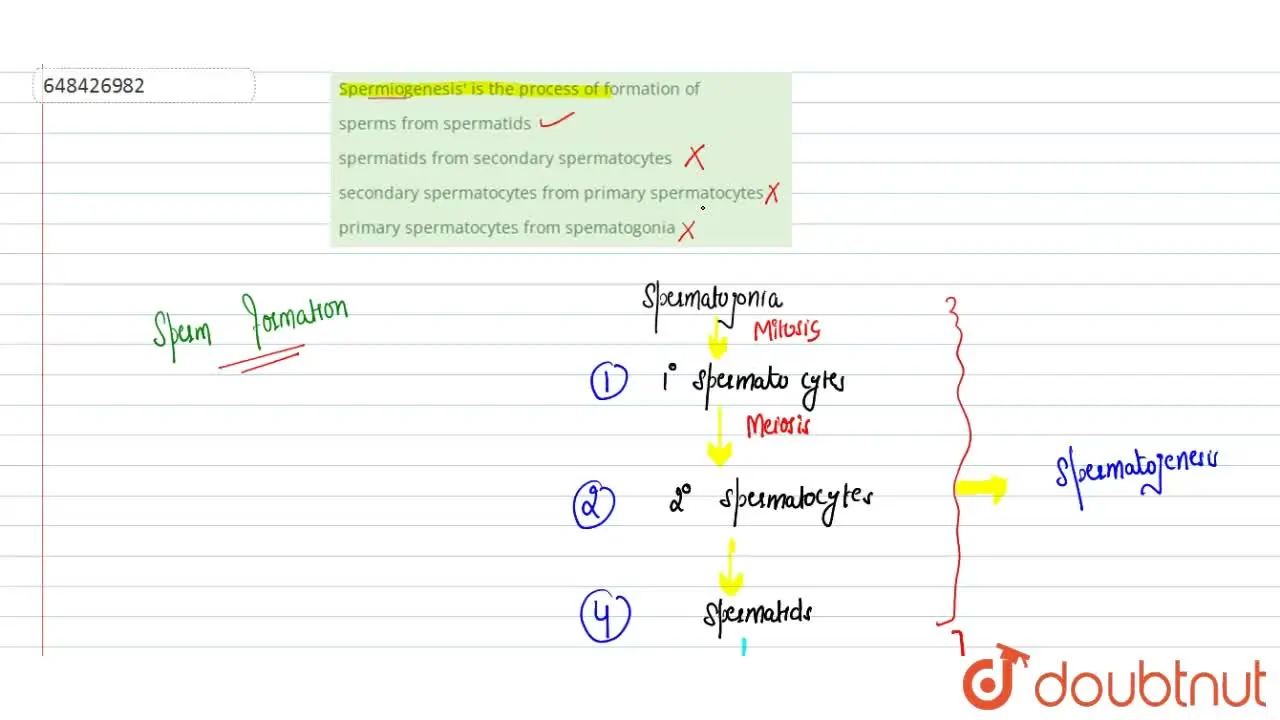 648426982
Spermiogenesis' is the process of formation of
sperms from spermatids
spermatids from secondary spermatocytes X
secondary spermatocytes from primary spermatocytes X
primary spermatocytes from spematogonia X
Sperm formation
Spermatogonia
Mitosis
1 1° Spermato cytes
Meiosis
Spermatogenesis
2 2° Spermatocytes
4 Spermatids
doubtnut